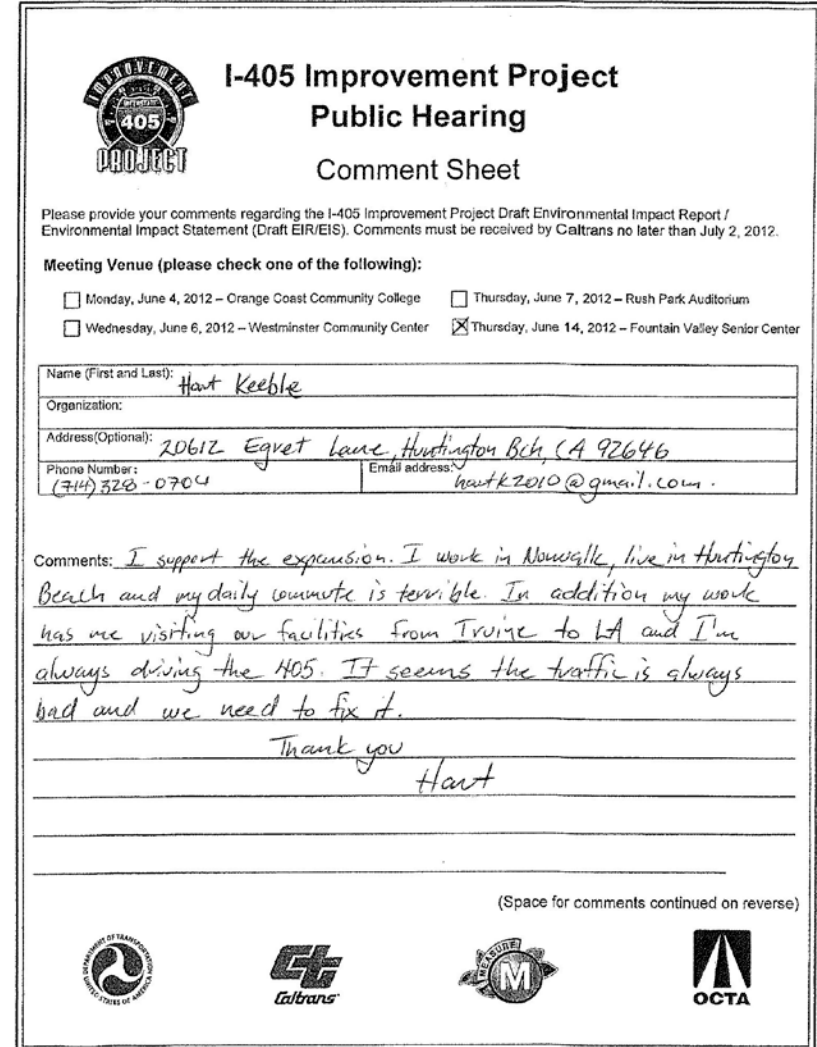 IMPROVEMENT
INTERSTATE
405
PROJECT
I-405 Improvement Project
Public Hearing
Comment Sheet
Please provide your comments regarding the I-405 Improvement Project Draft Environmental Impact Report /
Environmental Impact Statement (Draft EIR/EIS). Comments must be received by Caltrans no later than July 2, 2012.
Meeting Venue (please check one of the following):
Monday, June 4, 2012 – Orange Coast Community College
Thursday, June 7, 2012 – Rush Park Auditorium
Wednesday, June 6, 2012 – Westminster Community Center
Thursday, June 14, 2012 – Fountain Valley Senior Center
Name (First and Last): Hart Keeble
Organization:
Address(Optional): 20612 Egret Lane, Huntington Bch, CA 92646
Phone Number: (714) 328-0704
Email address: hartk2010@gmail.com.
Comments: I support the expansion. I work in Norwalk, live in Huntington
Beach and my daily commute is terrible. In addition my work
has me visiting our facilities from Irvine to LA and I'm
always driving the 405. It seems the traffic is always
bad and we need to fix it.
Thank you
Hart
(Space for comments continued on reverse)
DEPARTMENT OF TRANSPORTATION
UNITED STATES OF AMERICA
Caltrans
MEASURE
M
OCTA